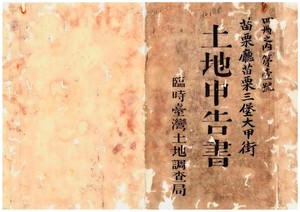 四冊之內第壹號
苗栗廳苗栗三堡大甲街
土地申告書
臨時臺灣土地調查局